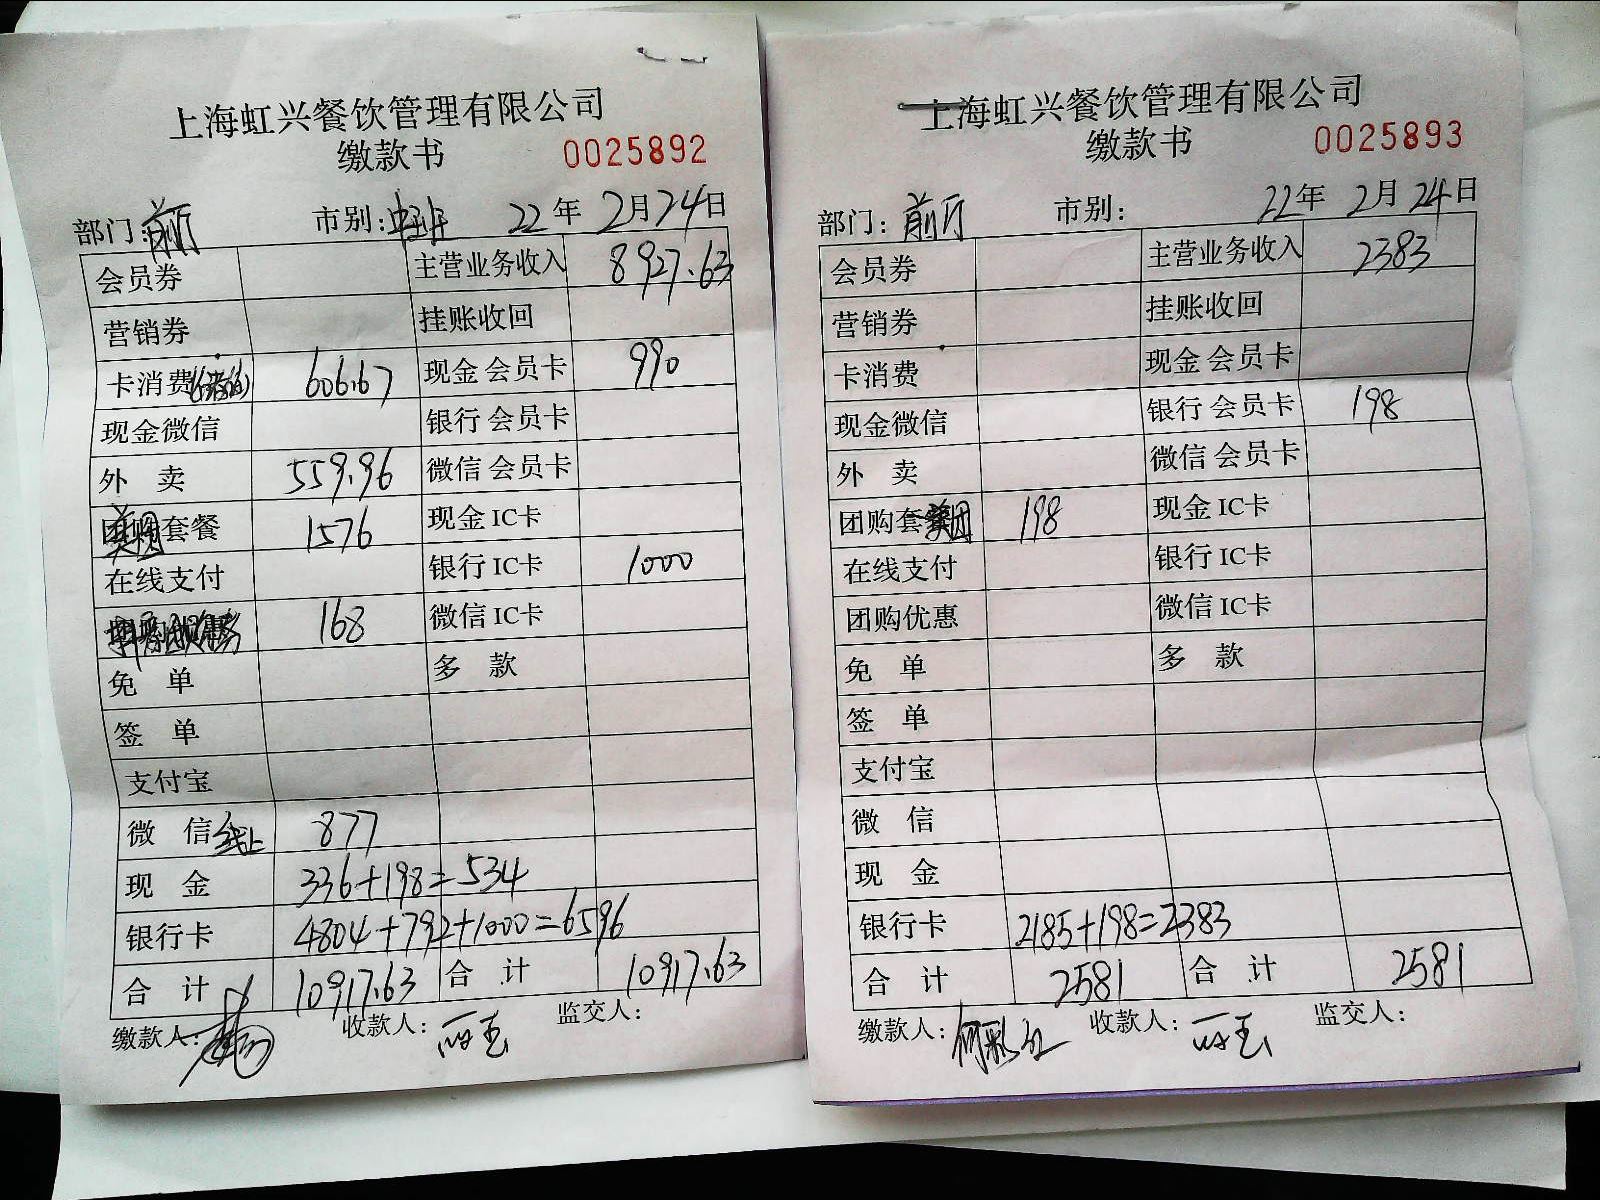 上海虹兴餐饮管理有限公司
缴款书 0025892
部门：前厅 市别： 22年 2月24日
会员券 主营业务收入 8927.63
营销券 挂账收回
卡消费 606.67 现金会员卡 990
现金微信 银行会员卡
外 卖 559.96 微信会员卡
美团套餐 1576 现金IC卡
在线支付 银行IC卡 1000
168 微信IC卡
免 单 多 款
签 单
支付宝
微 信 线上 877
现 金 336+198=534
银行卡 4804+792+1000=6596
合 计 10917.63 合 计 10917.63
缴款人： 收款人： 监交人：
上海虹兴餐饮管理有限公司
缴款书 0025893
部门：前厅 市别： 22年 2月24日
会员券 主营业务收入 2383
营销券 挂账收回
卡消费 现金会员卡
现金微信 银行会员卡 198
外 卖 微信会员卡
团购套美团 198 现金IC卡
在线支付 银行IC卡
团购优惠 微信IC卡
免 单 多 款
签 单
支付宝
微 信
现 金
银行卡 2185+198=2383
合 计 2581 合 计 2581
缴款人： 收款人： 监交人：